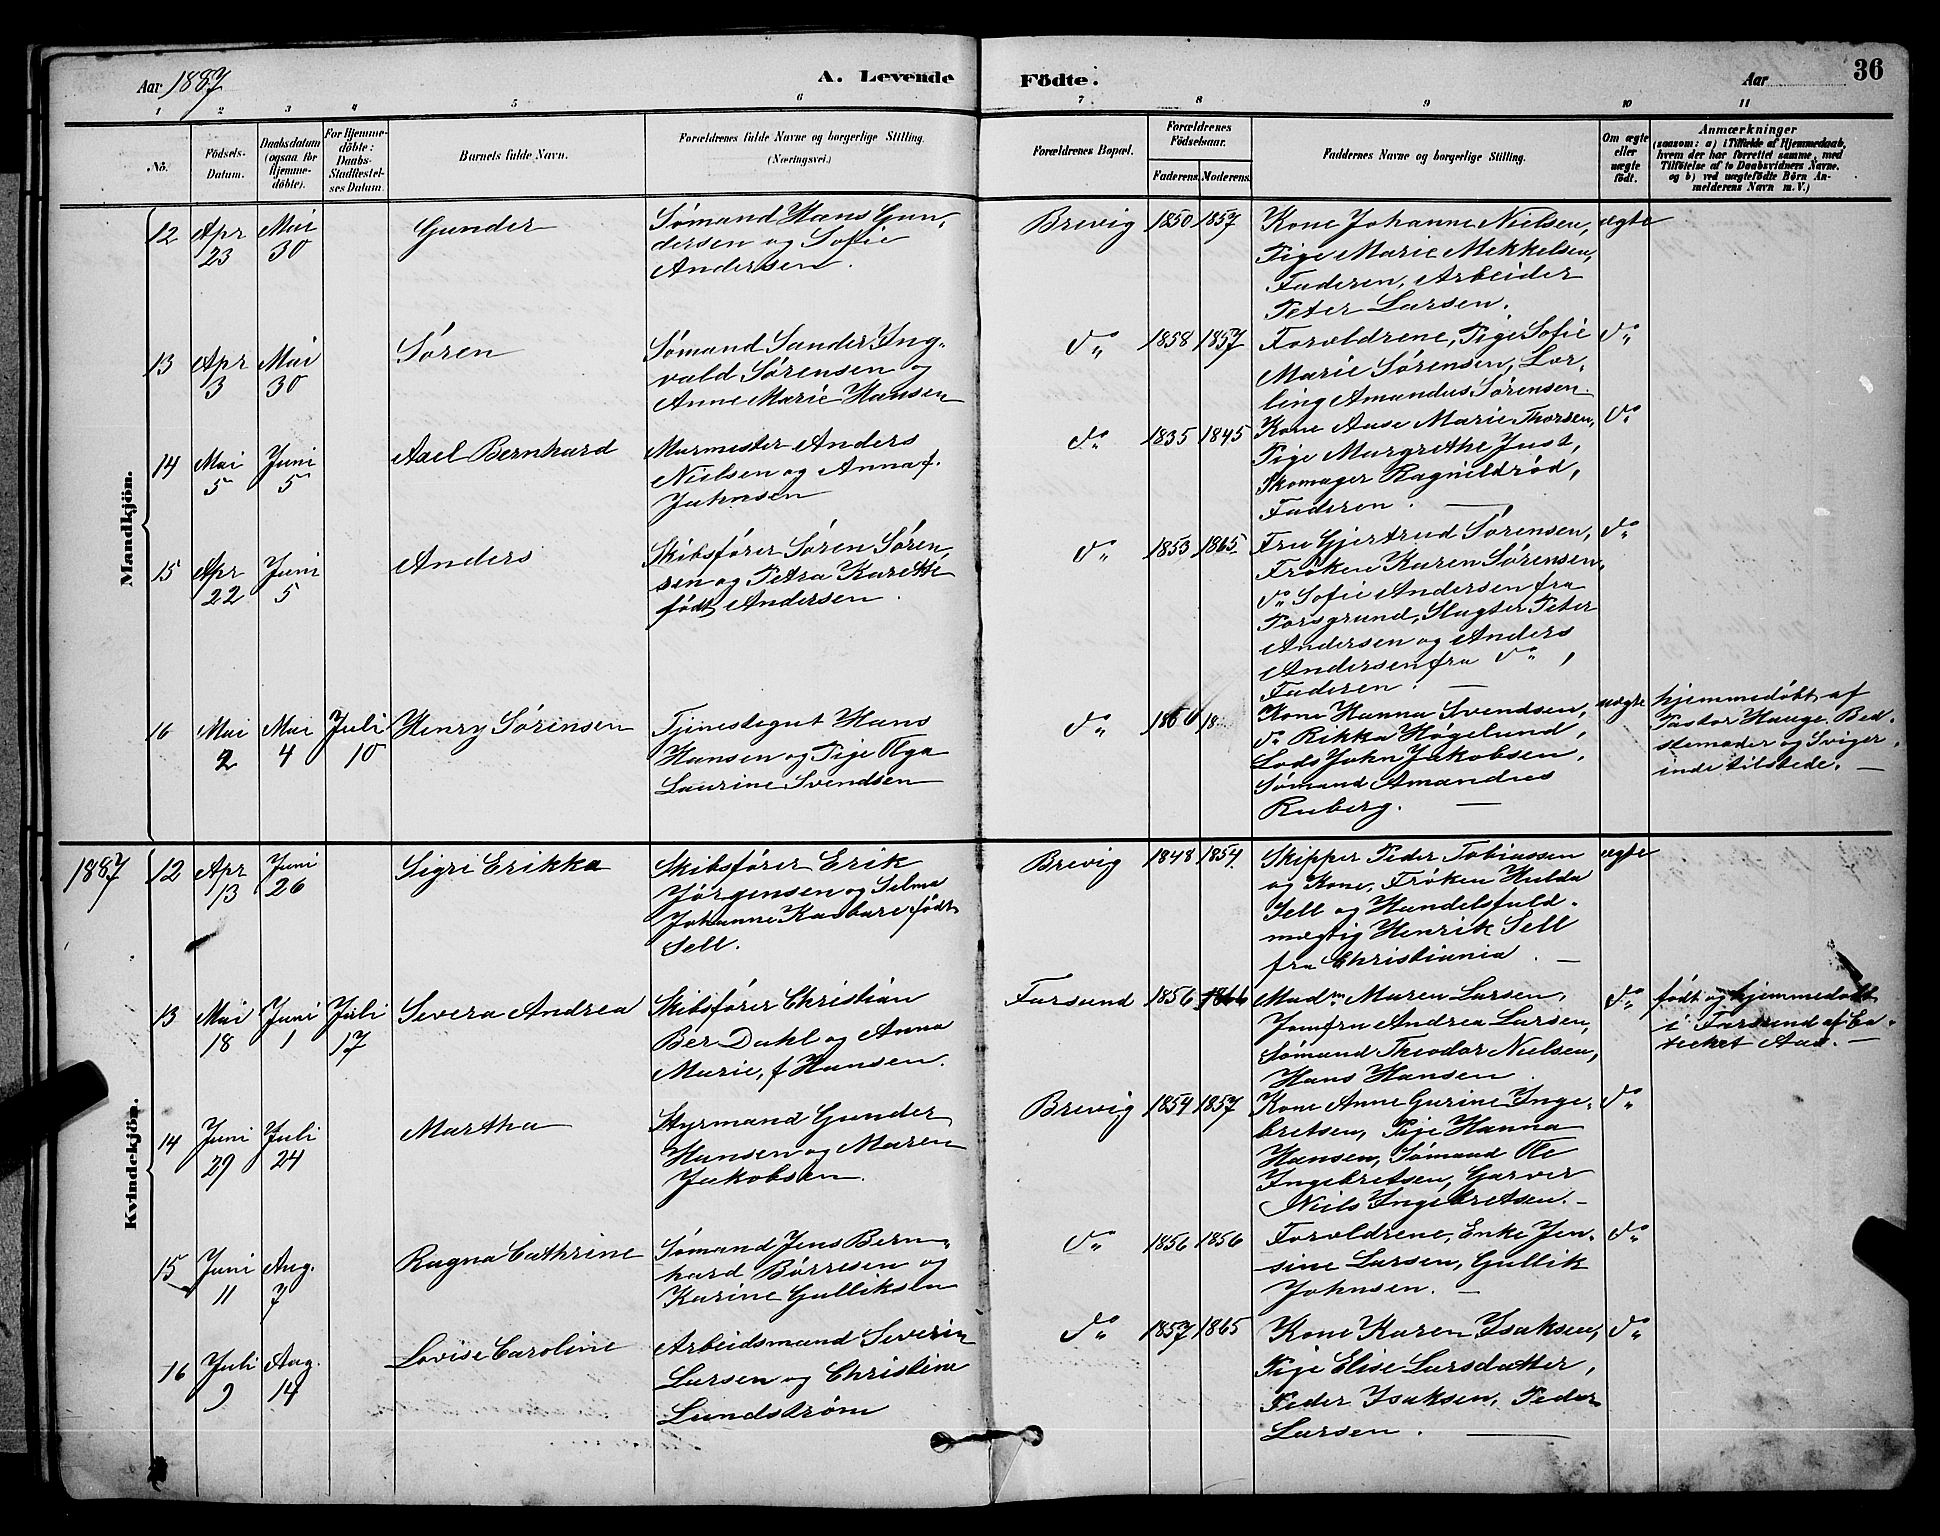 Aar 1887
A. Levende Födte.
Aar
36
1 2 3 4 5 6 7 8 9 10 11
No.
Födsels-
Datum.
Daabsdatum
(ogsaa for
Hjemme-
döbte).
For Hjemme-
döbte:
Daabs-
Stadfæstel-
ses Datum.
Barnets fulde Navn.
Forældrenes fulde Navne og borgerlige Stilling.
(Næringsvei.)
Forældrenes Bopæl.
Forældrenes
Födselsaar.
Faderens. Moderens.
Faddernes Navne og borgerlige Stilling.
Om ægte
eller
uægte
født.
Anmærkninger
(saasom: a) i Tilfælde af Hjemmedaab,
hvem der har forrettet samme, med
Tilföielse af to Daabsvidners Navne,
og b) ved uægtefödte Börn An-
melderens Navn m. V.)
Mandkjön.
12 Apr 23 Mai 30 Gunder
Sømand Hans Gun-
dersen og Sofie
Andersen.
Brevig 1850 1857
Kone Johanne Nielsen,
Pige Marie Mekkelsen,
Faderen, Arbeider
Peter Larsen.
ægte
13 Apr 3 Mai 30 Søren
Sømand Sander Ing-
vald Sørensen og
Anne Marie Hansen
do 1858 1857
Forældrene, Pige Sofie
Marie Sørensen, Lær-
ling Amandus Sørensen.
do
14 Mai 5 Juni 5 Axel Bernhard
Murmester Anders
Nielsen og Anna f.
Jahnsen
do 1835 1845
Kone Aase Marie Thorsen,
Pige Margrethe Just,
Skomager Ragnildrød,
Faderen.
do
15 Apr 22 Juni 5 Anders
Skibsfører Søren Søren-
sen og Petra Karethe
født Andersen.
do 1853 1865
Fru Gjertrud Sørensen,
Frøken Karen Sørensen,
do Sofie Andersen fra
Porsgrund, Slagter Peter
Andersen og Anders
Andersen fra do,
Faderen.
do
16 Mai 2 Mai 4 Juli 10 Henry Sørensen
Tjenestegut Hans
Hansen og Pige Olga
Laurine Svendsen
do 18
Kone Hanna Svendsen,
do Rikka Høgelund,
Lods John Jakobsen,
Sømand Amandus
Ruberg.
uægte
hjemmedøbt af
Pastor Hauge. Bed-
stemoder og Sviger-
inde tilstede.
1887
Kvindekjön.
12 Apr 13 Juni 26 Sigri Erikka
Skibsfører Erik
Jørgensen og Selma
Johanne født
Sell.
Brevig 1848 1854
Skipper Peder Tobiassen
og Kone, Frøken Hulda
Sell og Handelsfuld-
mægtig Henrik Sell
fra Christiania.
ægte
13 Mai 18 Juni 1 Juli 17 Severa Andrea
Skibsfører Christian
Ber Dahl og Anna
Marie, f Hansen.
Farsund 1856 1866
Madm Maren Larsen,
Jomfru Andrea Larsen,
Sømand Theodor Nielsen,
Hans Hansen.
do
født og hjemmedøbt
i Farsund af Ca-
teket Aas.
14 Juni 29 Juli 24 Martha
Styrmand Gunder
Hansen og Maren
Jakobsen.
Brevig 1854 1857
Kone Anne Gurine Inge-
bretsen, Pige Hanna
Hansen, Sømand Ole
Ingebretsen, Garver
Niels Ingebretsen.
do
15 Juni 11 Aug. 7 Ragna Cathrine
Sømand Jens Bern-
hard Børresen og
Karine Gulliksen
do 1856 1856
Forældrene, Enke Jen-
sine Larsen, Gullik
Johnsen.
do
16 Juli 9 Aug. 14 Lovise Caroline
Arbeidsmand Severin
Larsen og Christine
Lundstrøm
do 1857 1865
Kone Karen Isaksen,
Pige Elise Larsdatter,
Peder Isaksen, Peder
Larsen.
do